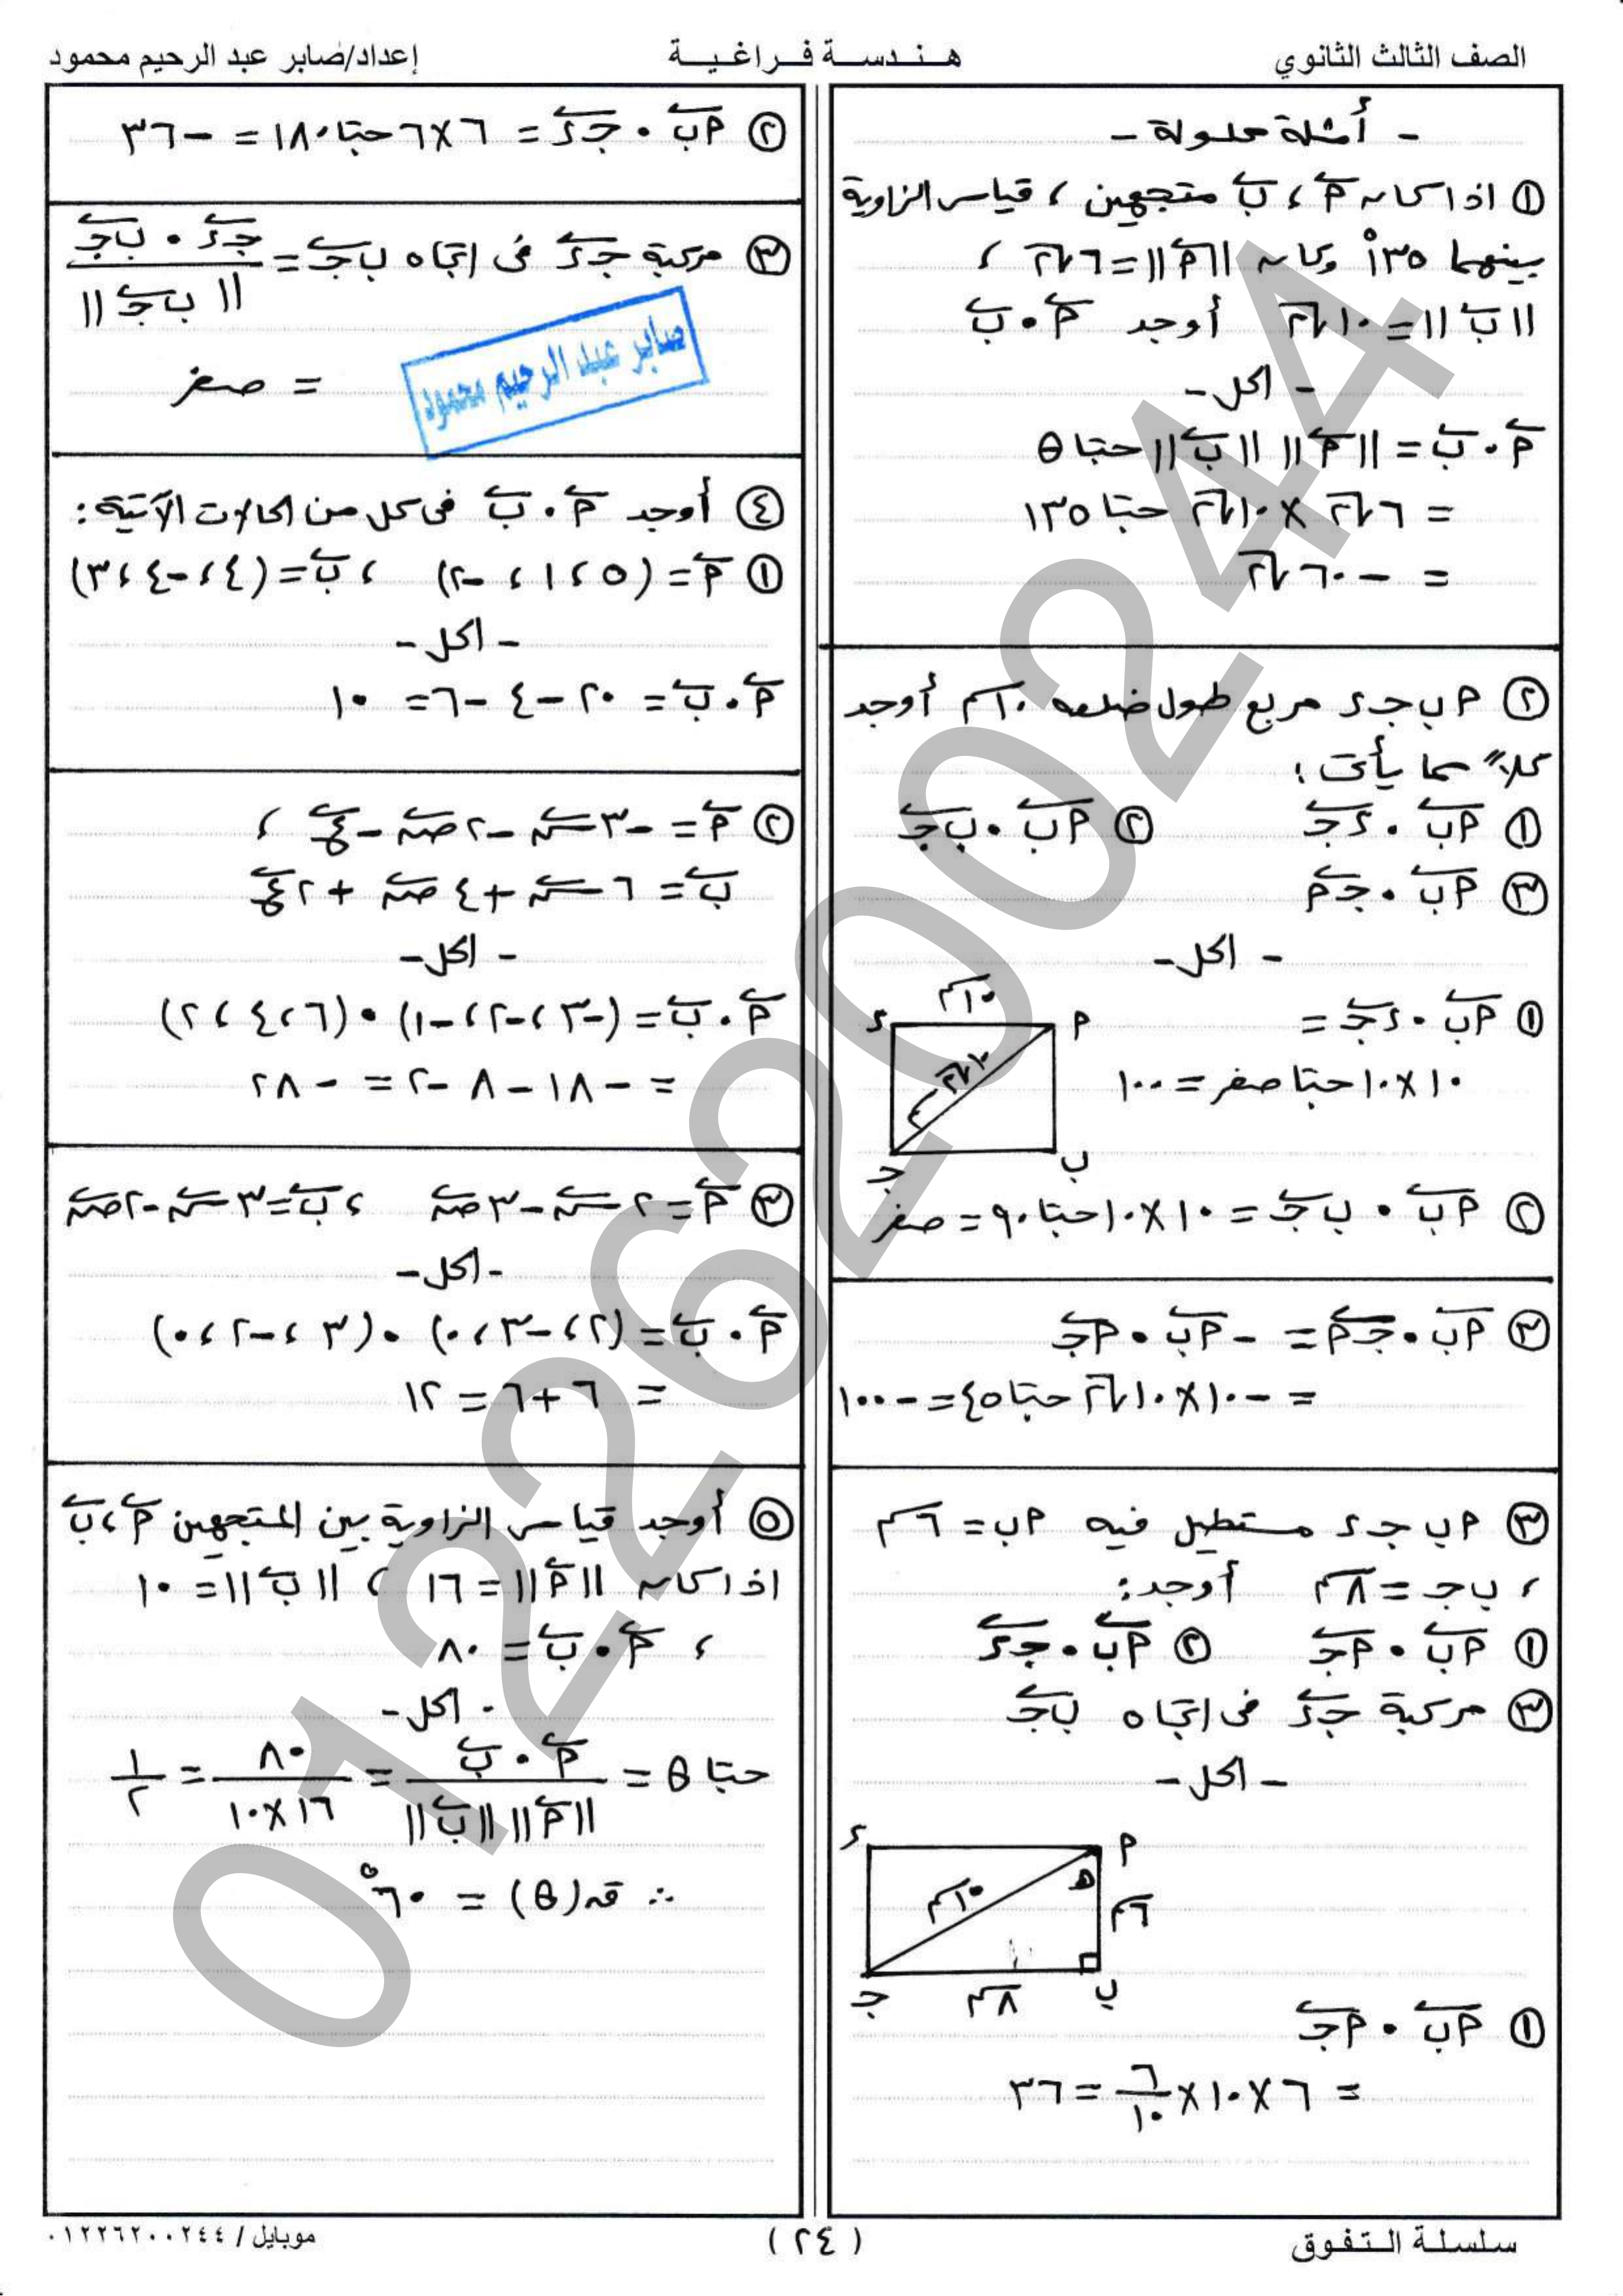 الصف الثالث الثانوي
هـنـدسـة فـراغـيـة
إعداد/صابر عبد الرحيم محمود
- أمثلة محلولة -
① اذا كان أَ ، بَ متجهين ، قياس الزاوية
بينهما ١٣٥° وكان ||أَ|| = ٦√٢ ،
||بَ|| = ١٠√٢ أوجد أَ . بَ
- الحل -
أَ . بَ = ||أَ|| ||بَ|| حتا θ
= ٦√٢ × ١٠√٢ حتا ١٣٥
= - ٦٠√٢
② أ ب جـ ء مربع طول ضلعه ١٠ سم أوجد
كلاً مما يأتى :
① أب . ء جـ ② أب . ب جـ
③ أب . جـ أ
- الحل -
① أب . ء جـ =
١٠ × ١٠ حتا صفر = ١٠٠
١٠ سم
ء أ
١٠√٢ سم
جـ ب
② أب . ب جـ = ١٠ × ١٠ حتا ٩٠ = صفر
③ أب . جـ أ = - أب . أجـ
= - ١٠ × ١٠√٢ حتا ٤٥ = - ١٠٠
③ أ ب جـ ء مستطيل فيه أب = ٦ سم
، ب جـ = ٨ سم أوجد :
① أب . أجـ ② أب . جـ ء
③ مركبة جـ ء فى اتجاه ب جـ
- الحل -
ء أ
١٠ سم
٦ سم
جـ ٨ سم ب
① أب . أجـ
= ٦ × ١٠ × ٦/١٠ = ٣٦
② أب . جـ ء = ٦ × ٦ حتا ١٨٠ = - ٣٦
③ مركبة جـ ء فى اتجاه ب جـ = جـ ء . ب جـ / || ب جـ ||
= صفر
صابر عبد الرحيم محمود
④ أوجد أَ . بَ فى كل من الحالات الآتية :
① أَ = (٥ ، ١ ، -٢) ، بَ = (٤ ، -٤ ، ٣)
- الحل -
أَ . بَ = ٢٠ - ٤ - ٦ = ١٠
② أَ = -٣ سَ - ٢ صَ - عَ ،
بَ = ٦ سَ + ٤ صَ + ٢ عَ
- الحل -
أَ . بَ = (-٣ ، -٢ ، -١) . (٦ ، ٤ ، ٢)
= - ١٨ - ٨ - ٢ = - ٢٨
③ أَ = ٢ سَ - ٣ صَ ، بَ = ٣ سَ - ٢ صَ
- الحل -
أَ . بَ = (٢ ، -٣ ، ٠) . (٣ ، -٢ ، ٠)
= ٦ + ٦ = ١٢
⑤ أوجد قياس الزاوية بين المتجهين أَ ، بَ
اذا كان ||أَ|| = ١٦ ، ||بَ|| = ١٠
، أَ . بَ = ٨٠
- الحل -
حتا θ = أَ . بَ / ||أَ|| ||بَ|| = ٨٠ / ١٦ × ١٠ = ١/٢
∴ قہ (θ) = ٦٠°
01226200244
سلسلة الـتـفـوق
( ٢٤ )
موبايل / ٠١٢٢٦٢٠٠٢٤٤